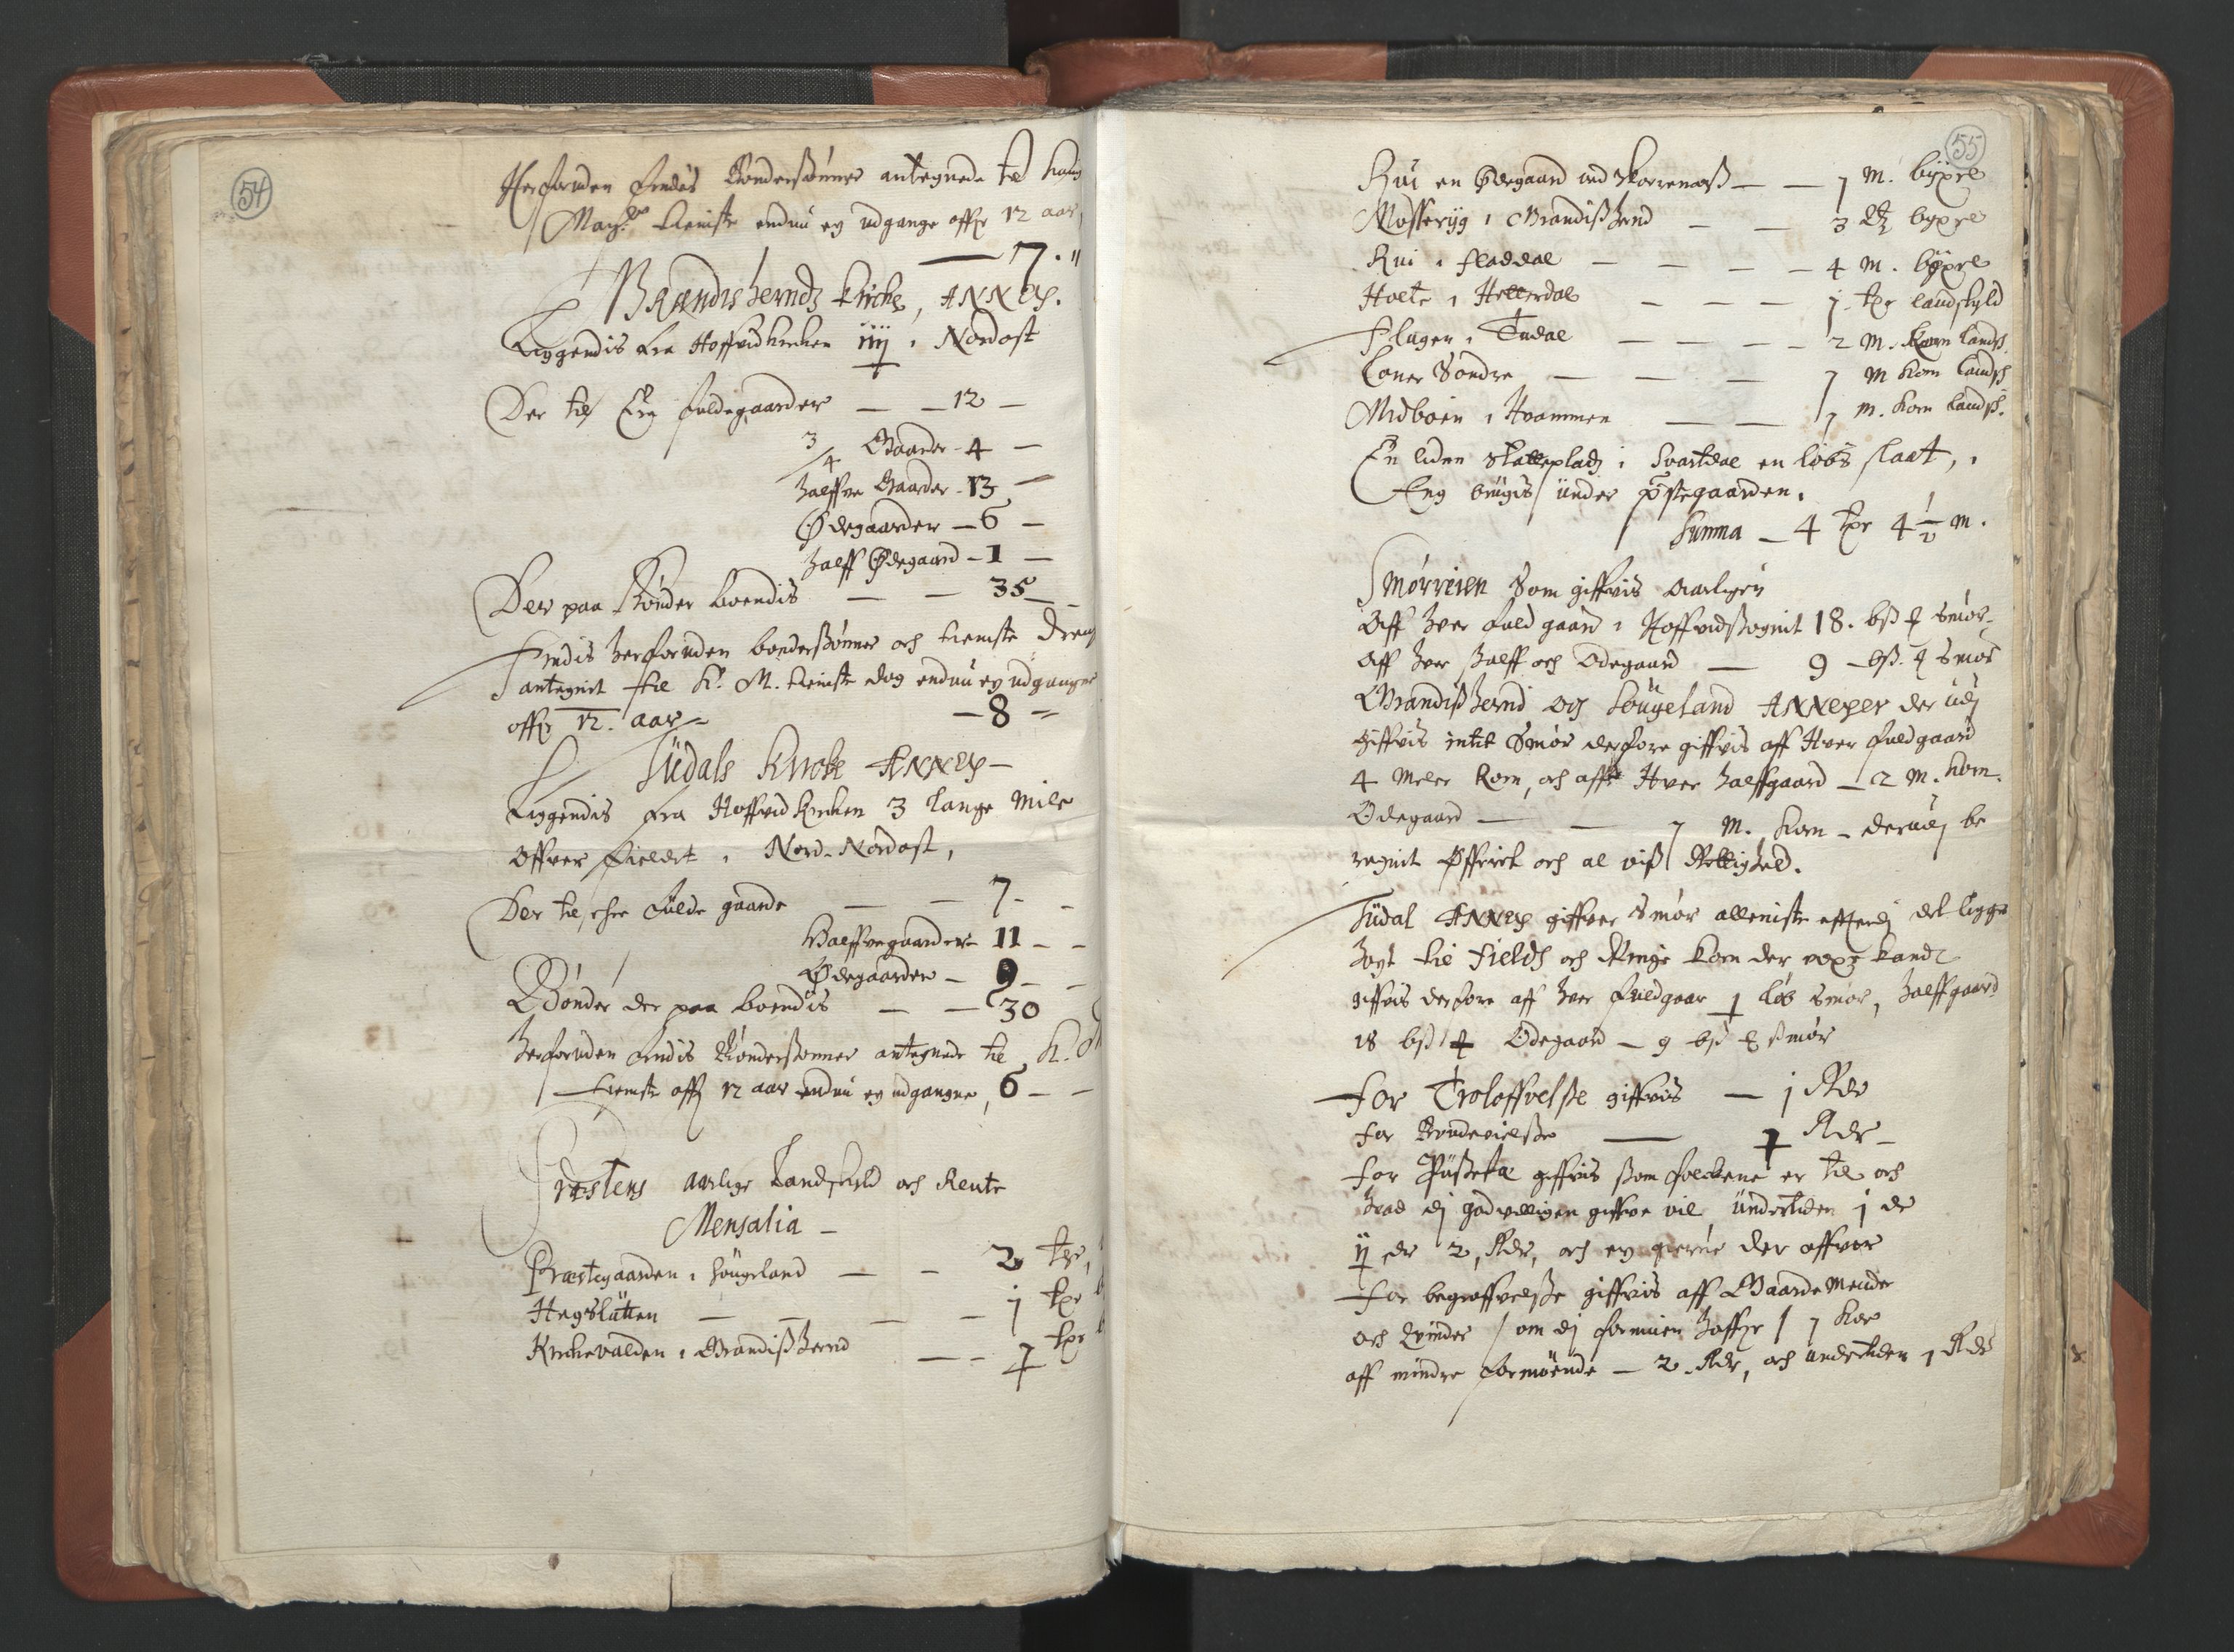 54
Herforuden findis Bønderßønner antegnede til Kong
May:ts tieniste endnu ey udgange offr 12 aar,
— 7. "
Brandisherndz Kircke, ANNex.
Liggendis fra Hoffvidkircken iiij ı Nordost
Der til Er fuldegaarder — — 12 —
3/4 Gaarder - 4 —
halffve Gaarder - 13 —
Ødegaarder — 6 —
halff Ødegaard - 1 —
Der paa Bønder boendis — — 35 —
Findis herforuden bønderßønner och tieniste Dreng
antegnit til K. M. tieniste dog endnu ey udgangne
offr 12. aar — — 8 —
Tüdals Kircke ANNex —
Liggendis fra Hoffvid Kircken 3 lange Mile
Offver fieldet ı Nord-Nordost,
Der til, ere fulde gaarde — — 7 - -
Halffvegaarder - 11 - -
Ødegaarder — 9 - -
Bønder der paa boendis — — 30
herforuden findis Bønderßønner antegnede til K. M
tieniste offr 12 aar endnu ey udgangne, 6 — —
Præstens aarlige Landskyld och Rente
Mensalia —
Præstegaarden ı Søugeland — — 2 tpr,
Hegslåtten — — — — j tpr
Kirckevolden ı Brandißhernd — — 1 tpr
55
Rui en Ødegaard ved — — 1 M. bÿxel
Mosserÿg ı Brandißhernd — — 3 bÿxel
Rui ı fladdal — — — — 4 M. bÿxel
Holte ı Hitterdal — — — j tpr landskyld
Flager ı Tudal — — — — 2 M. Korn lands.
Loner Søndre — — — 1 M Korn landsk
Midbøen ı Hvammen — — 1 M. Korn landsk.
En liden Slatteplads i Svartdal en løbs slaat, ı
Eng brugis under præstegaarden.
Summa — 4 tpr 4 1/2 M.
Smørreien Som giffvis Aarligen
Aff hver fuld gaard ı Hoffvidßognit 18. bß Smør -
Aff hver halff och Ødegaard — 9 - bß. Smør
Brandißhernd og Søugeland ANNexer der udj
giffvis intet Smør derfore giffvis aff Hver fuldgaard
4 Meler Korn, och aff Hver halffgaard — 2 M. Korn.
Ødegaard — — 1 M. Korn — derudj be
regnit Øfferiet och al viß Rettighed.
Tüdal ANNex giffver Smør alleniste efftterdj det ligge
høyt til fields och Ringe Korn der voxe kand
giffvis derfore aff hver fuldgaar 1 løb smør, halffgaard
18 bß Ødegaard — 9 bß ßmør
For Troloffvelße giffvis — j Rdr
For Brudevielße — 1 Rdr —
For giffvis ßom folckene er til och
hvad dj godvilligen giffve vil, Undertiden j dr
ij dr 2, Rdr, och ey gierne der offver
For begraffvelße giffvis aff Gaarde Mende
och Qvinder / om dj formuen haffve / 1 Koe
aff mindre formuende — 2. Rdr, och undertiden 1 Rdr